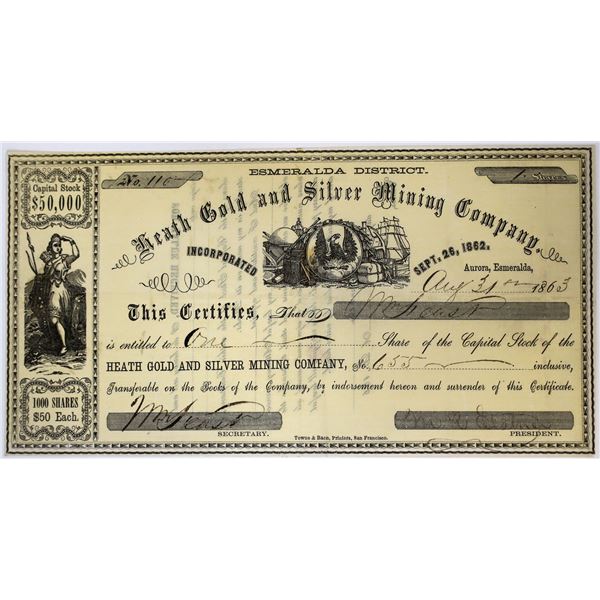 ESMERALDA DISTRICT.
Capital Stock
$50,000
No. 110
1 Shares
Heath Gold and Silver Mining Company.
INCORPORATED
SEPT. 26, 1862.
Aurora, Esmeralda,
Aug 31 1863
This Certifies, That Wm Feast
is entitled to One Share of the Capital Stock of the
HEATH GOLD AND SILVER MINING COMPANY, No. 655 inclusive,
Transferable on the Books of the Company, by indorsement hereon and surrender of this Certificate.
1000 SHARES
$50 Each.
Wm Feast
SECRETARY.
PRESIDENT.
Towne & Bacon, Printers, San Francisco.